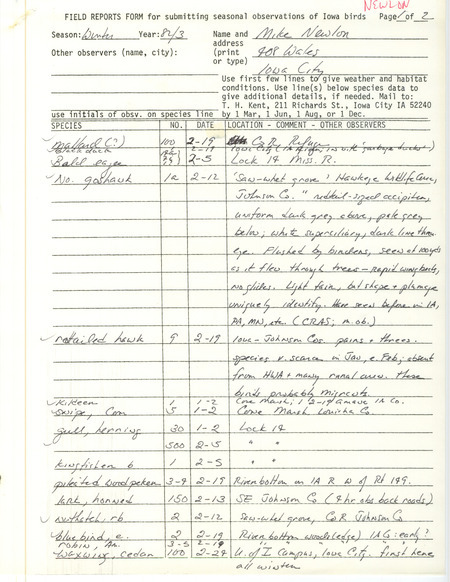 NEWLON
FIELD REPORTS FORM for submitting seasonal observations of Iowa birds Page 1 of 2
Season: Winter Year: 82/3 Name and Mike Newlon
Other observers (name, city): address
(print 408 Wales
or type)
Iowa City
Use first few lines to give weather and habitat
conditions. Use line(s) below species data to
give additional details, if needed. Mail to:
T. H. Kent, 211 Richards St., Iowa City IA 52240
use initials of obsv. on species line by 1 Mar, 1 Jun, 1 Aug, or 1 Dec.
SPECIES NO. DATE LOCATION - COMMENT - OTHER OBSERVERS
mallard 100 2-19
2-19 Iowa City
Bald eagle 2-5 Lock 14 Miss. R.
No. goshawk 1a 2-12 'Saw-whet grove' Hawkeye Wildlife Area,
Johnson Co. " redtail-sized accipiter,
uniform dark grey above, pale grey
below; white superciliary, dark line thru
eye. Flushed by birders, seen at 100yds
as it flew through trees - rapid wing beats,
no glides. Light fair, but shape + plumage
uniquely identify. Have seen before in IA,
PA, MN, etc. (CRAS; m. ob.)
redtailed hawk 9 2-19 Iowa - Johnson Cos. pairs + threes.
species v. scarce in Jan, e. Feb; absent
from HWA + many rural areas. These
birds probably migrants.
killdeer 1 1-2 Cone Marsh; 1 2-19 Amana IA Co.
snipe, Com 5 1-2 Cone Marsh Louisa Co.
gull, herring 30 1-2 Lock 14
500 2-5 " "
kingfisher b 1 2-5 " "
pileated woodpecker 3-4 2-19 River bottom on IA R W of Rt 149.
lark, horned 150 2-13 SE Johnson Co (4 hr obs back roads).
nuthatch, rb 2 2-12 Saw-whet grove, C.R. Johnson Co
bluebird, e. 2 2-19 River bottom woods (edge) IA Co: early?
robin, Am. 3-5 2-19 " " "
waxwing, cedar 100 2-24 U. of I Campus, Iowa City. first here
all winter